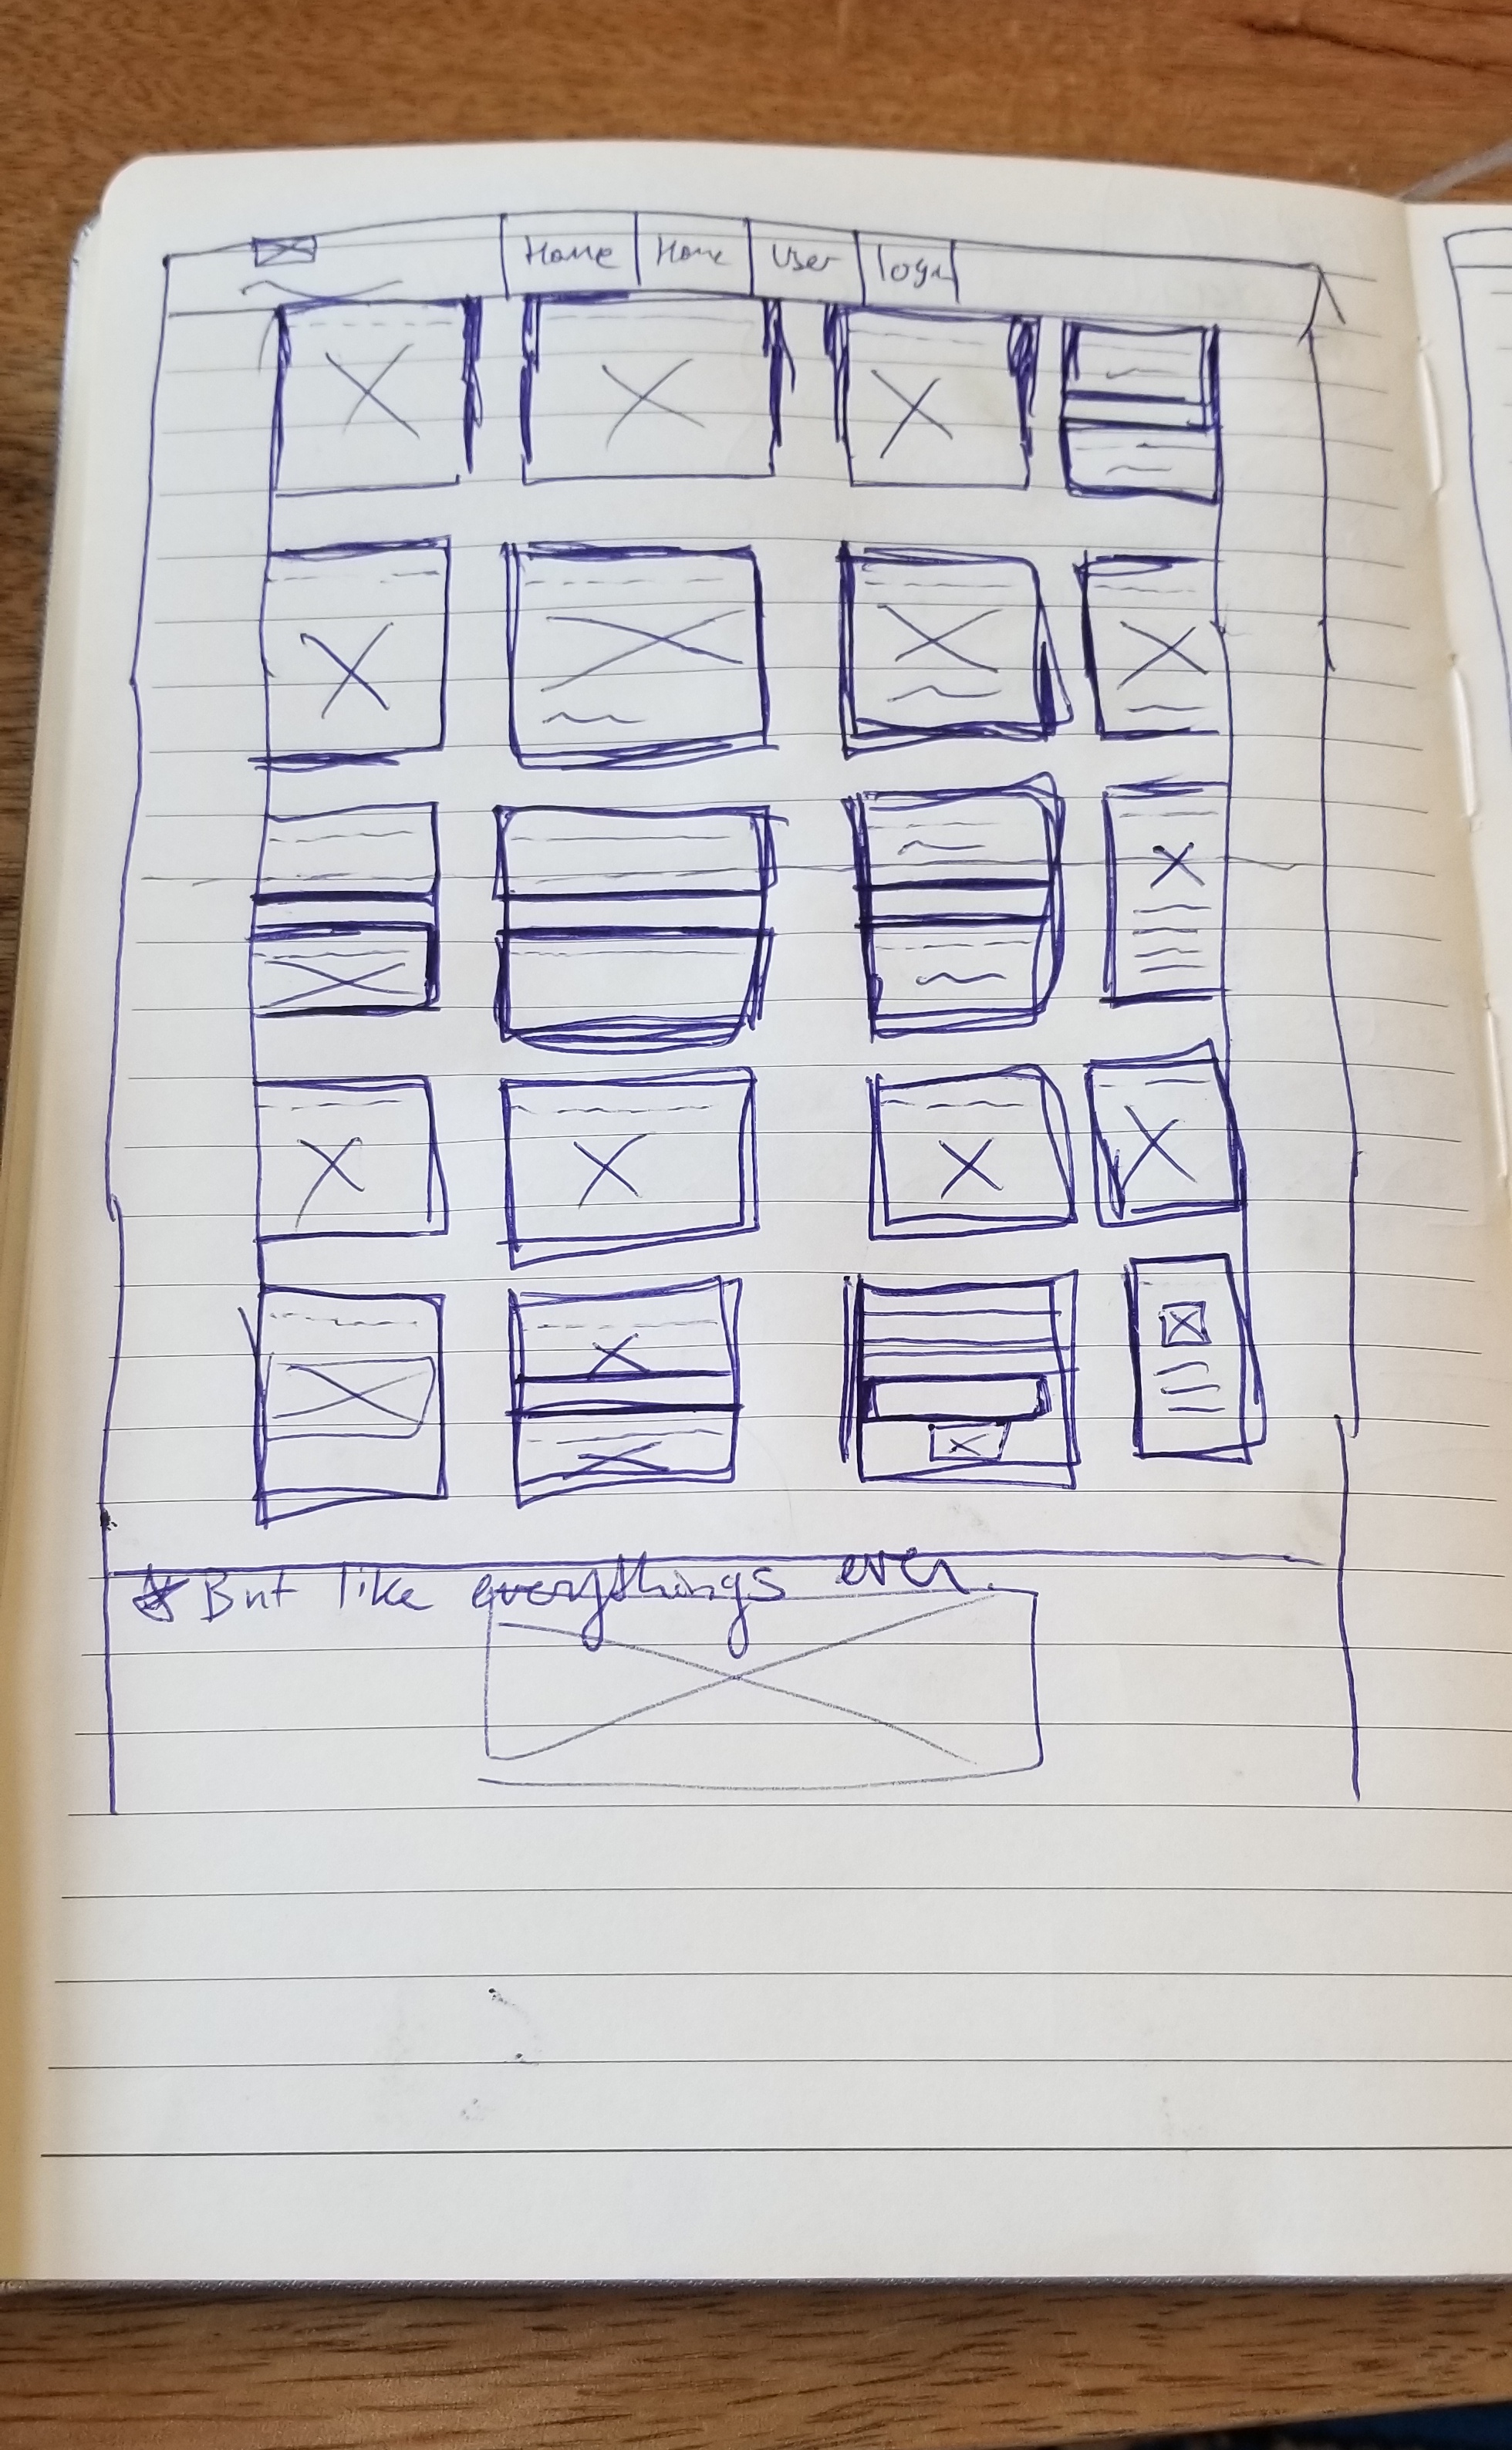 Home Home User login
But like everythings ever.